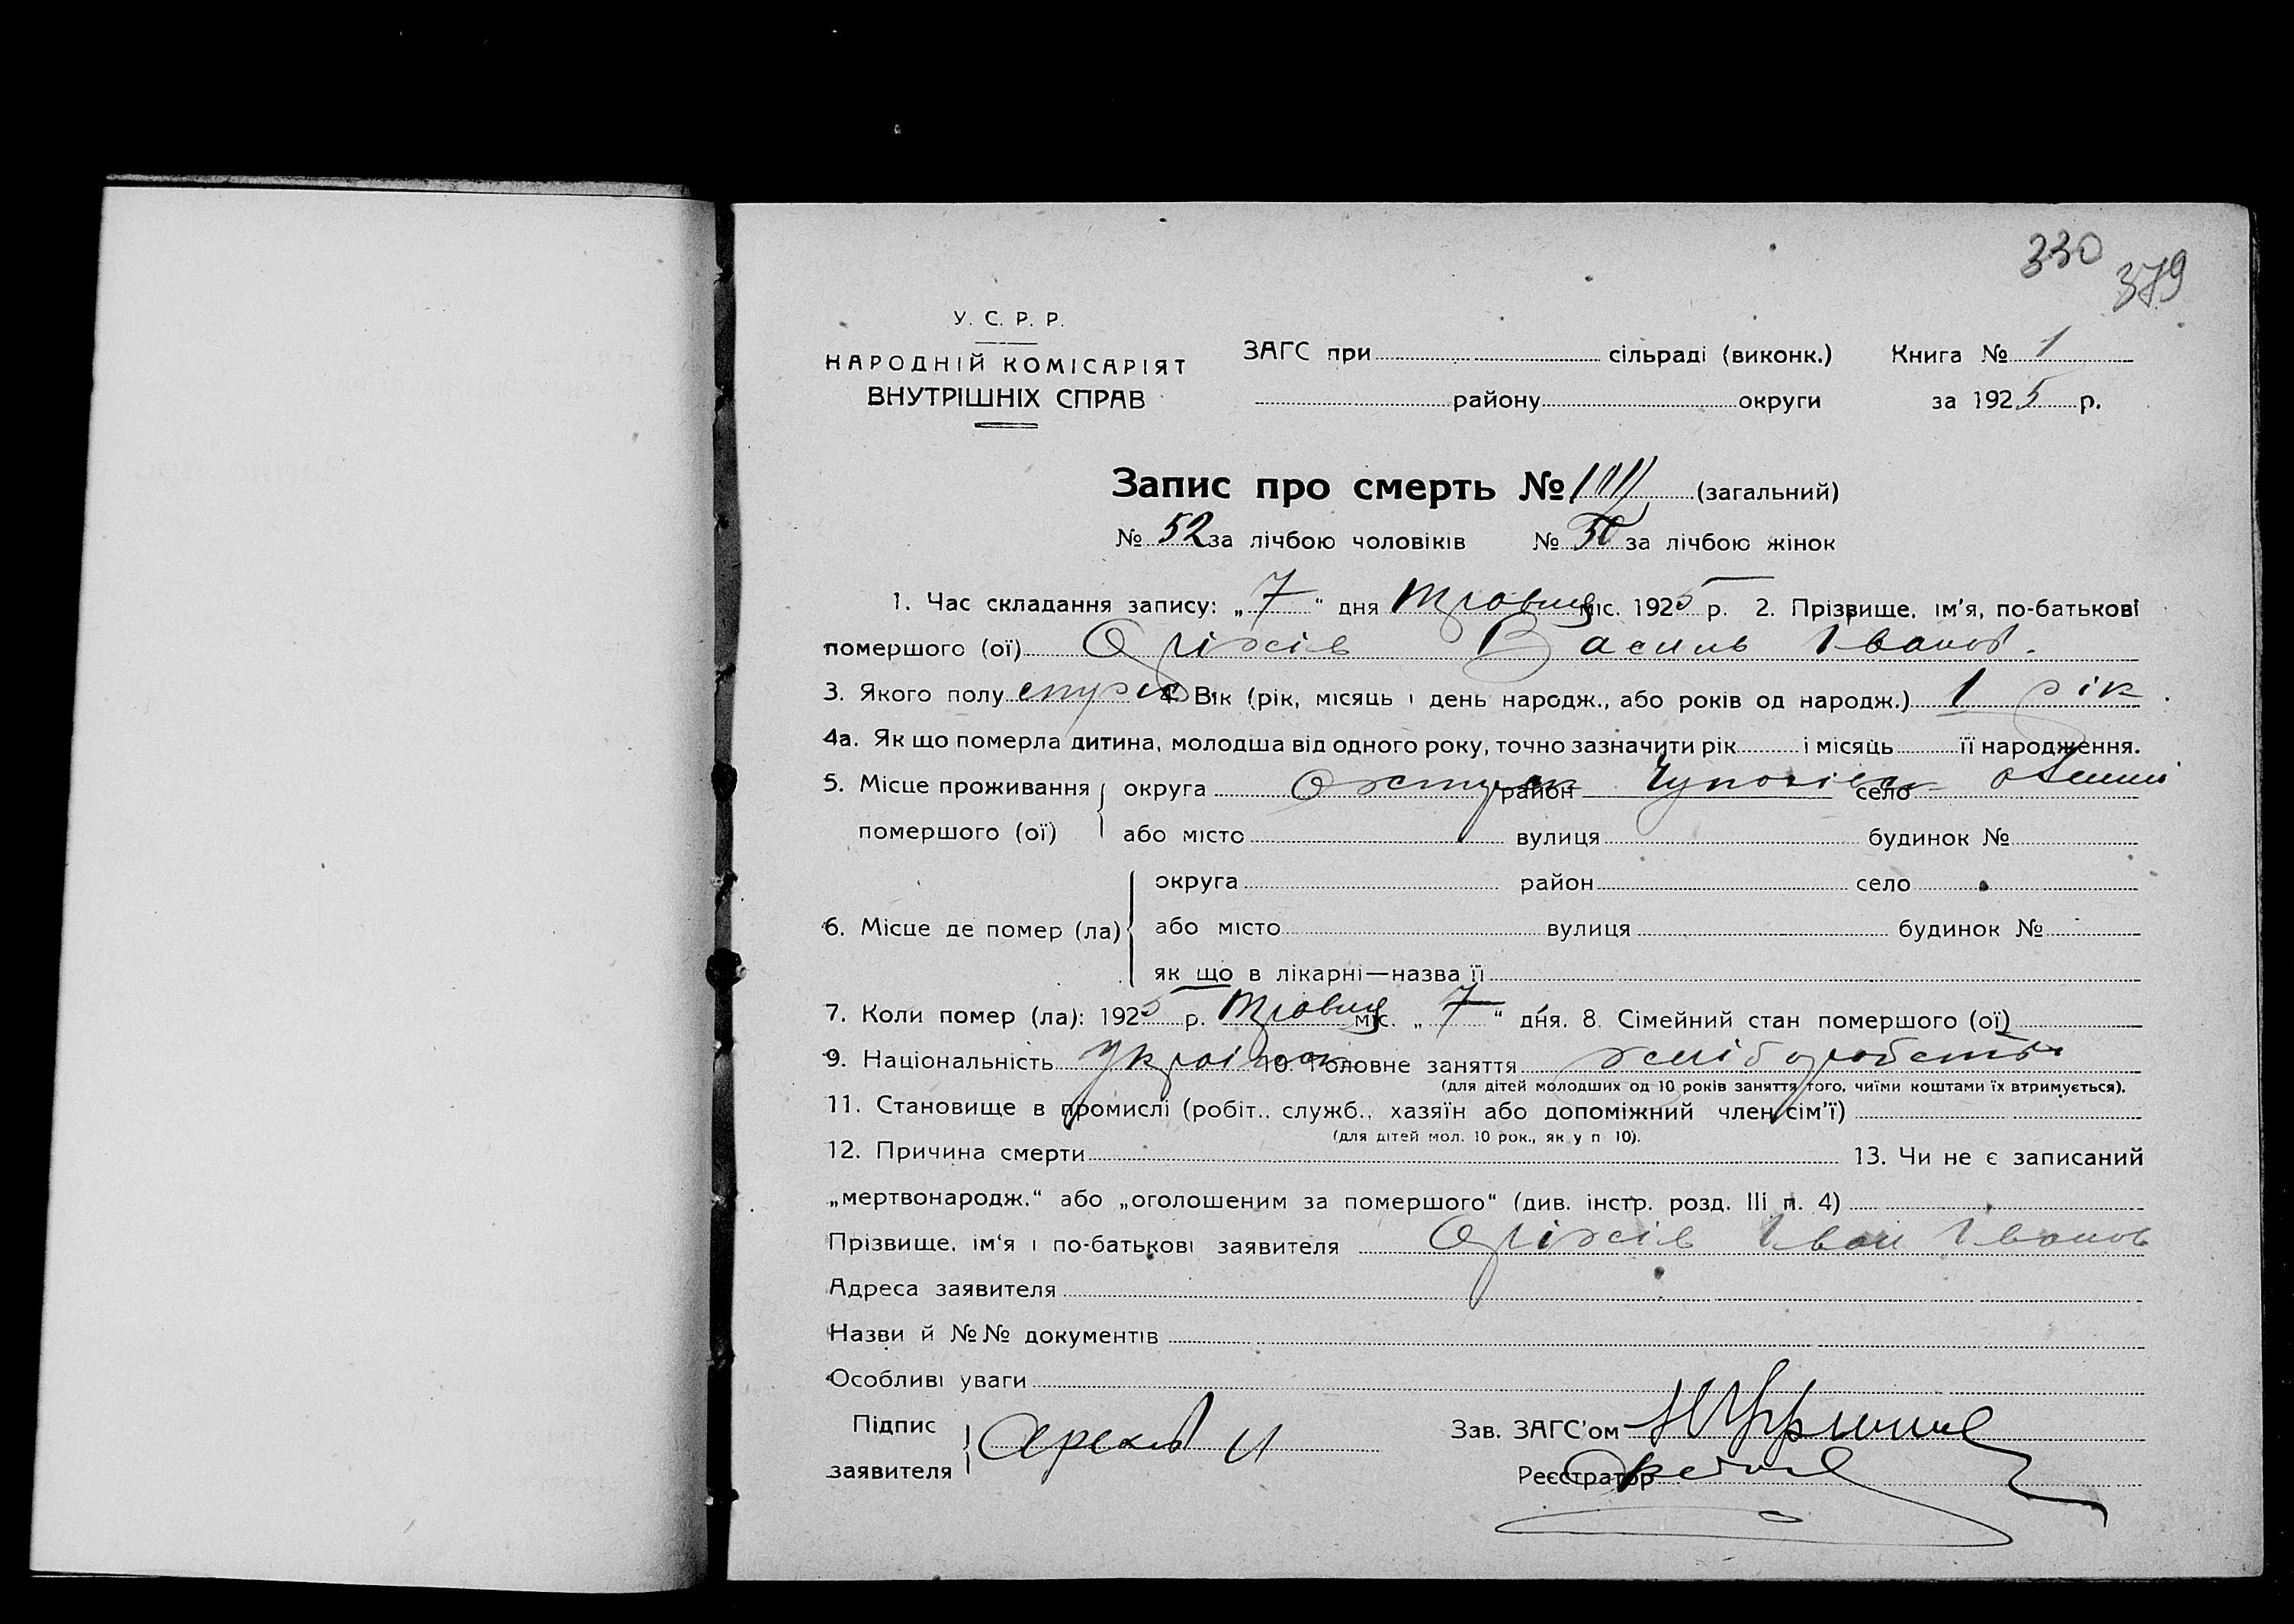 330
379
У. С. Р. Р.
НАРОДНІЙ КОМІСАРІЯТ
ВНУТРІШНІХ СПРАВ
ЗАГС при сільраді (виконк.) Книга № 1
району округи за 1925 р.
Запис про смерть № (загальний)
№ 52 за лічбою чоловіків № за лічбою жінок
1. Час складання запису: „7“ дня травня міс. 1925 р. 2. Прізвище, ім'я, по-батькові
помершого (ої) Оріхів Василь Іванов.
3. Якого полу 4. Вік (рік, місяць і день народж., або років од народж.) 1 рік.
4а. Як що померла дитина, молодша від одного року, точно зазначити рік і місяць її народження.
5. Місце проживання помершого (ої) округа район село
або місто вулиця будинок №
6. Місце де помер (ла) округа район село
або місто вулиця будинок №
як що в лікарні—назва її
7. Коли помер (ла): 1925 р. травня міс. „7“ дня. 8. Сімейний стан помершого (ої)
9. Національність 10. Головне заняття хліборобств
(для дітей молодших од 10 років заняття того, чиїми коштами їх втримується).
11. Становище в промислі (робіт., служб., хазяїн або допоміжний член сім'ї)
(для дітей мол. 10 рок., як у п 10).
12. Причина смерти 13. Чи не є записаний
„мертвонародж.“ або „оголошеним за помершого“ (див. інстр. розд. III п. 4)
Прізвище, ім'я і по-батькові заявителя Оріхів Іван Іванов
Адреса заявителя
Назви й №№ документів
Особливі уваги
Підпис заявителя Арехов И
Зав. ЗАГС'ом
Реєстратор